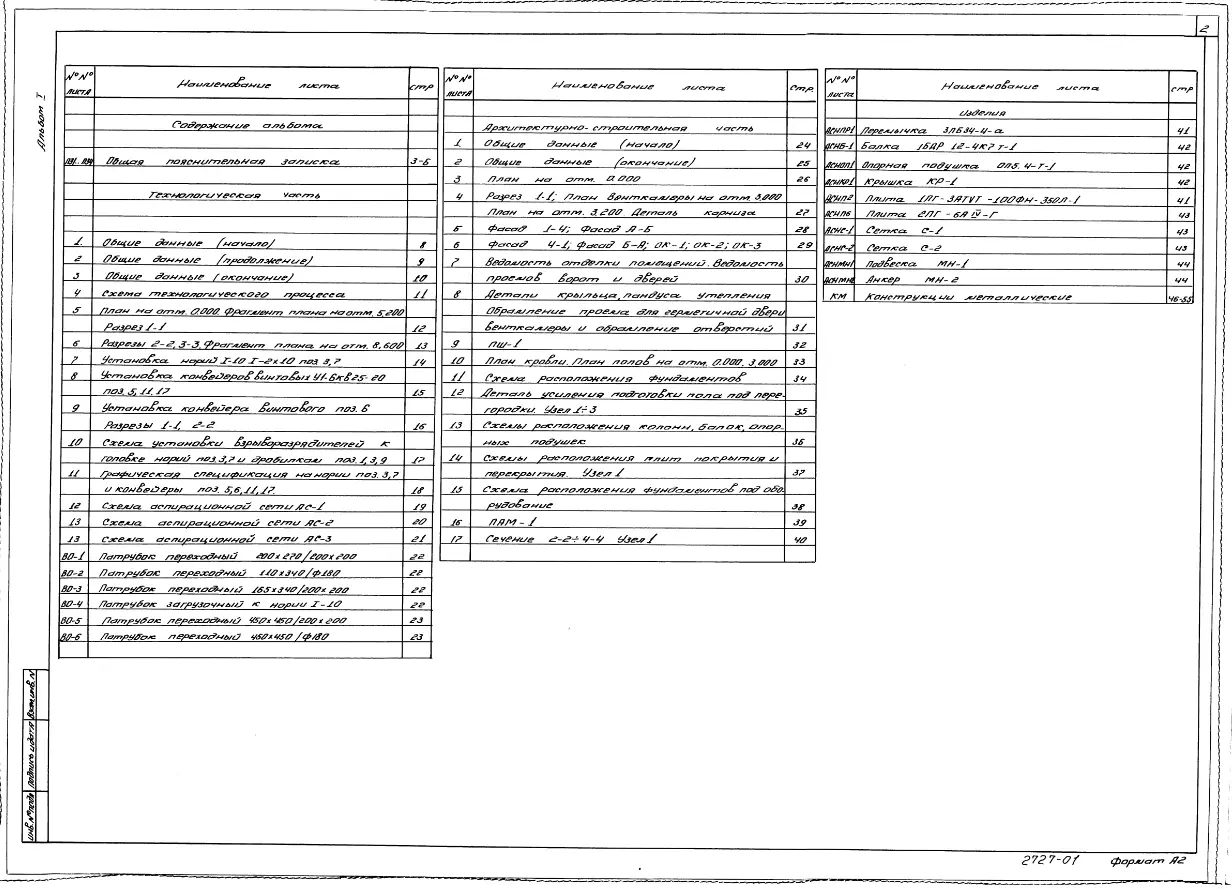 2
Альбом I
№№ листа Наименование листа стр
Содержание альбома
ПЗ1..ПЗ4 Общая пояснительная записка 3-6
Технологическая часть
1 Общие данные (начало) 8
2 Общие данные (продолжение) 9
3 Общие данные (окончание) 10
4 Схема технологического процесса 11
5 План на отм. 0.000. Фрагмент плана на отм. 5,200
Разрез 1-1 12
6 Разрезы 2-2, 3-3. Фрагмент плана на отм. 8,600 13
7 Установка норий I-10 I-2х10 поз. 3,7 14
8 Установка конвейеров винтовых У1-БКВ25-20
поз. 5, 11, 17 15
9 Установка конвейера винтового поз. 6
Разрезы 1-1, 2-2 16
10 Схема установки взрыворазрядителей к
головке норий поз. 3,7 и дробилкам поз. 1,3,9 17
11 Графическая спецификация на нории поз. 3,7
и конвейеры поз. 5,6,11,17. 18
12 Схема аспирационной сети АС-1 19
13 Схема аспирационной сети АС-2 20
13 Схема аспирационной сети АС-3 21
ВО-1 Патрубок переходный 200х270/200х200 22
ВО-2 Патрубок переходный 110х340/ф180 22
ВО-3 Патрубок переходный 165х340/200х200 22
ВО-4 Патрубок загрузочный к нории I-10 22
ВО-5 Патрубок переходный 450х450/200х200 23
ВО-6 Патрубок переходный 450х450/ф180 23
№№ листа Наименование листа Стр.
Архитектурно-строительная часть
1 Общие данные (начало) 24
2 Общие данные (окончание) 25
3 План на отм. 0.000 26
4 Разрез 1-1; План венткамеры на отм. 3,000
План на отм. 3.200 Деталь карниза 27
5 Фасад 1-4; Фасад А-Б 28
6 Фасад 4-1; фасад Б-А; ОК-1; ОК-2; ОК-3 29
7 Ведомость отделки помещений. Ведомость
проемов ворот и дверей 30
8 Детали крыльца, пандуса, утепления
Обрамление проема для герметичной двери
венткамеры и обрамление отверстий 31
9 ПШ-1 32
10 План кровли. План полов на отм. 0.000. 3,000 33
11 Схема расположения фундаментов 34
12 Деталь усиления подготовки пола под пере-
городки. Узел 1÷3 35
13 Схемы расположения колонн, балок, опор-
ных подушек 36
14 Схемы расположения плит покрытия и
перекрытия. Узел 1 37
15 Схема расположения фундаментов под обо
рудование 38
16 ПАМ-1 39
17 Сечение 2-2÷4-4 Узел 1 40
№№ листа Наименование листа стр
Изделия
АСИПР1 Перемычка 3ПБ34-4-а 41
АСИБ-1 Балка 1БДР 12-4К7 т-1 42
АСИОП1 Опорная подушка ОП5.4-Т-1 42
АСИКР1 Крышка КР-1 42
АСИП2 Плита 1ПГ-3АТVТ-100ФН-350Л-1 41
АСИП6 Плита 2ПГ-6АIV-Г 43
АСИС-1 Сетка С-1 43
АСИС-2 Сетка С-2 43
АСИМН1 Подвеска МН-1 44
АСИМН2 Анкер МН-2 44
КМ Конструкции металлические 46-55
Инв.№подл Подпись и дата Взам.инв.N
2727-01 формат А2